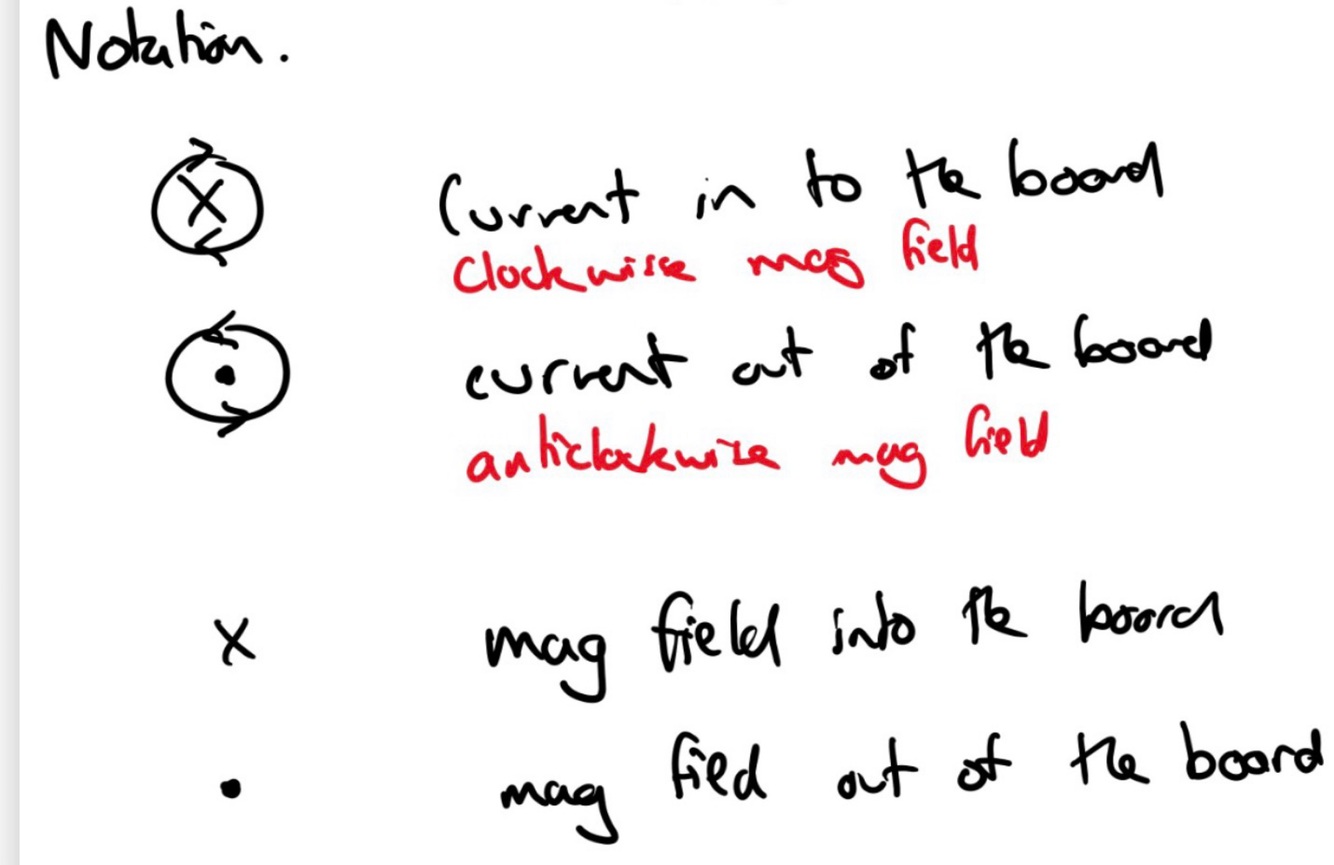 Notation.
X Current in to the board
Clockwise mag field
current out of the board
anticlockwise mag field
X mag field into the board
• mag fied out of the board